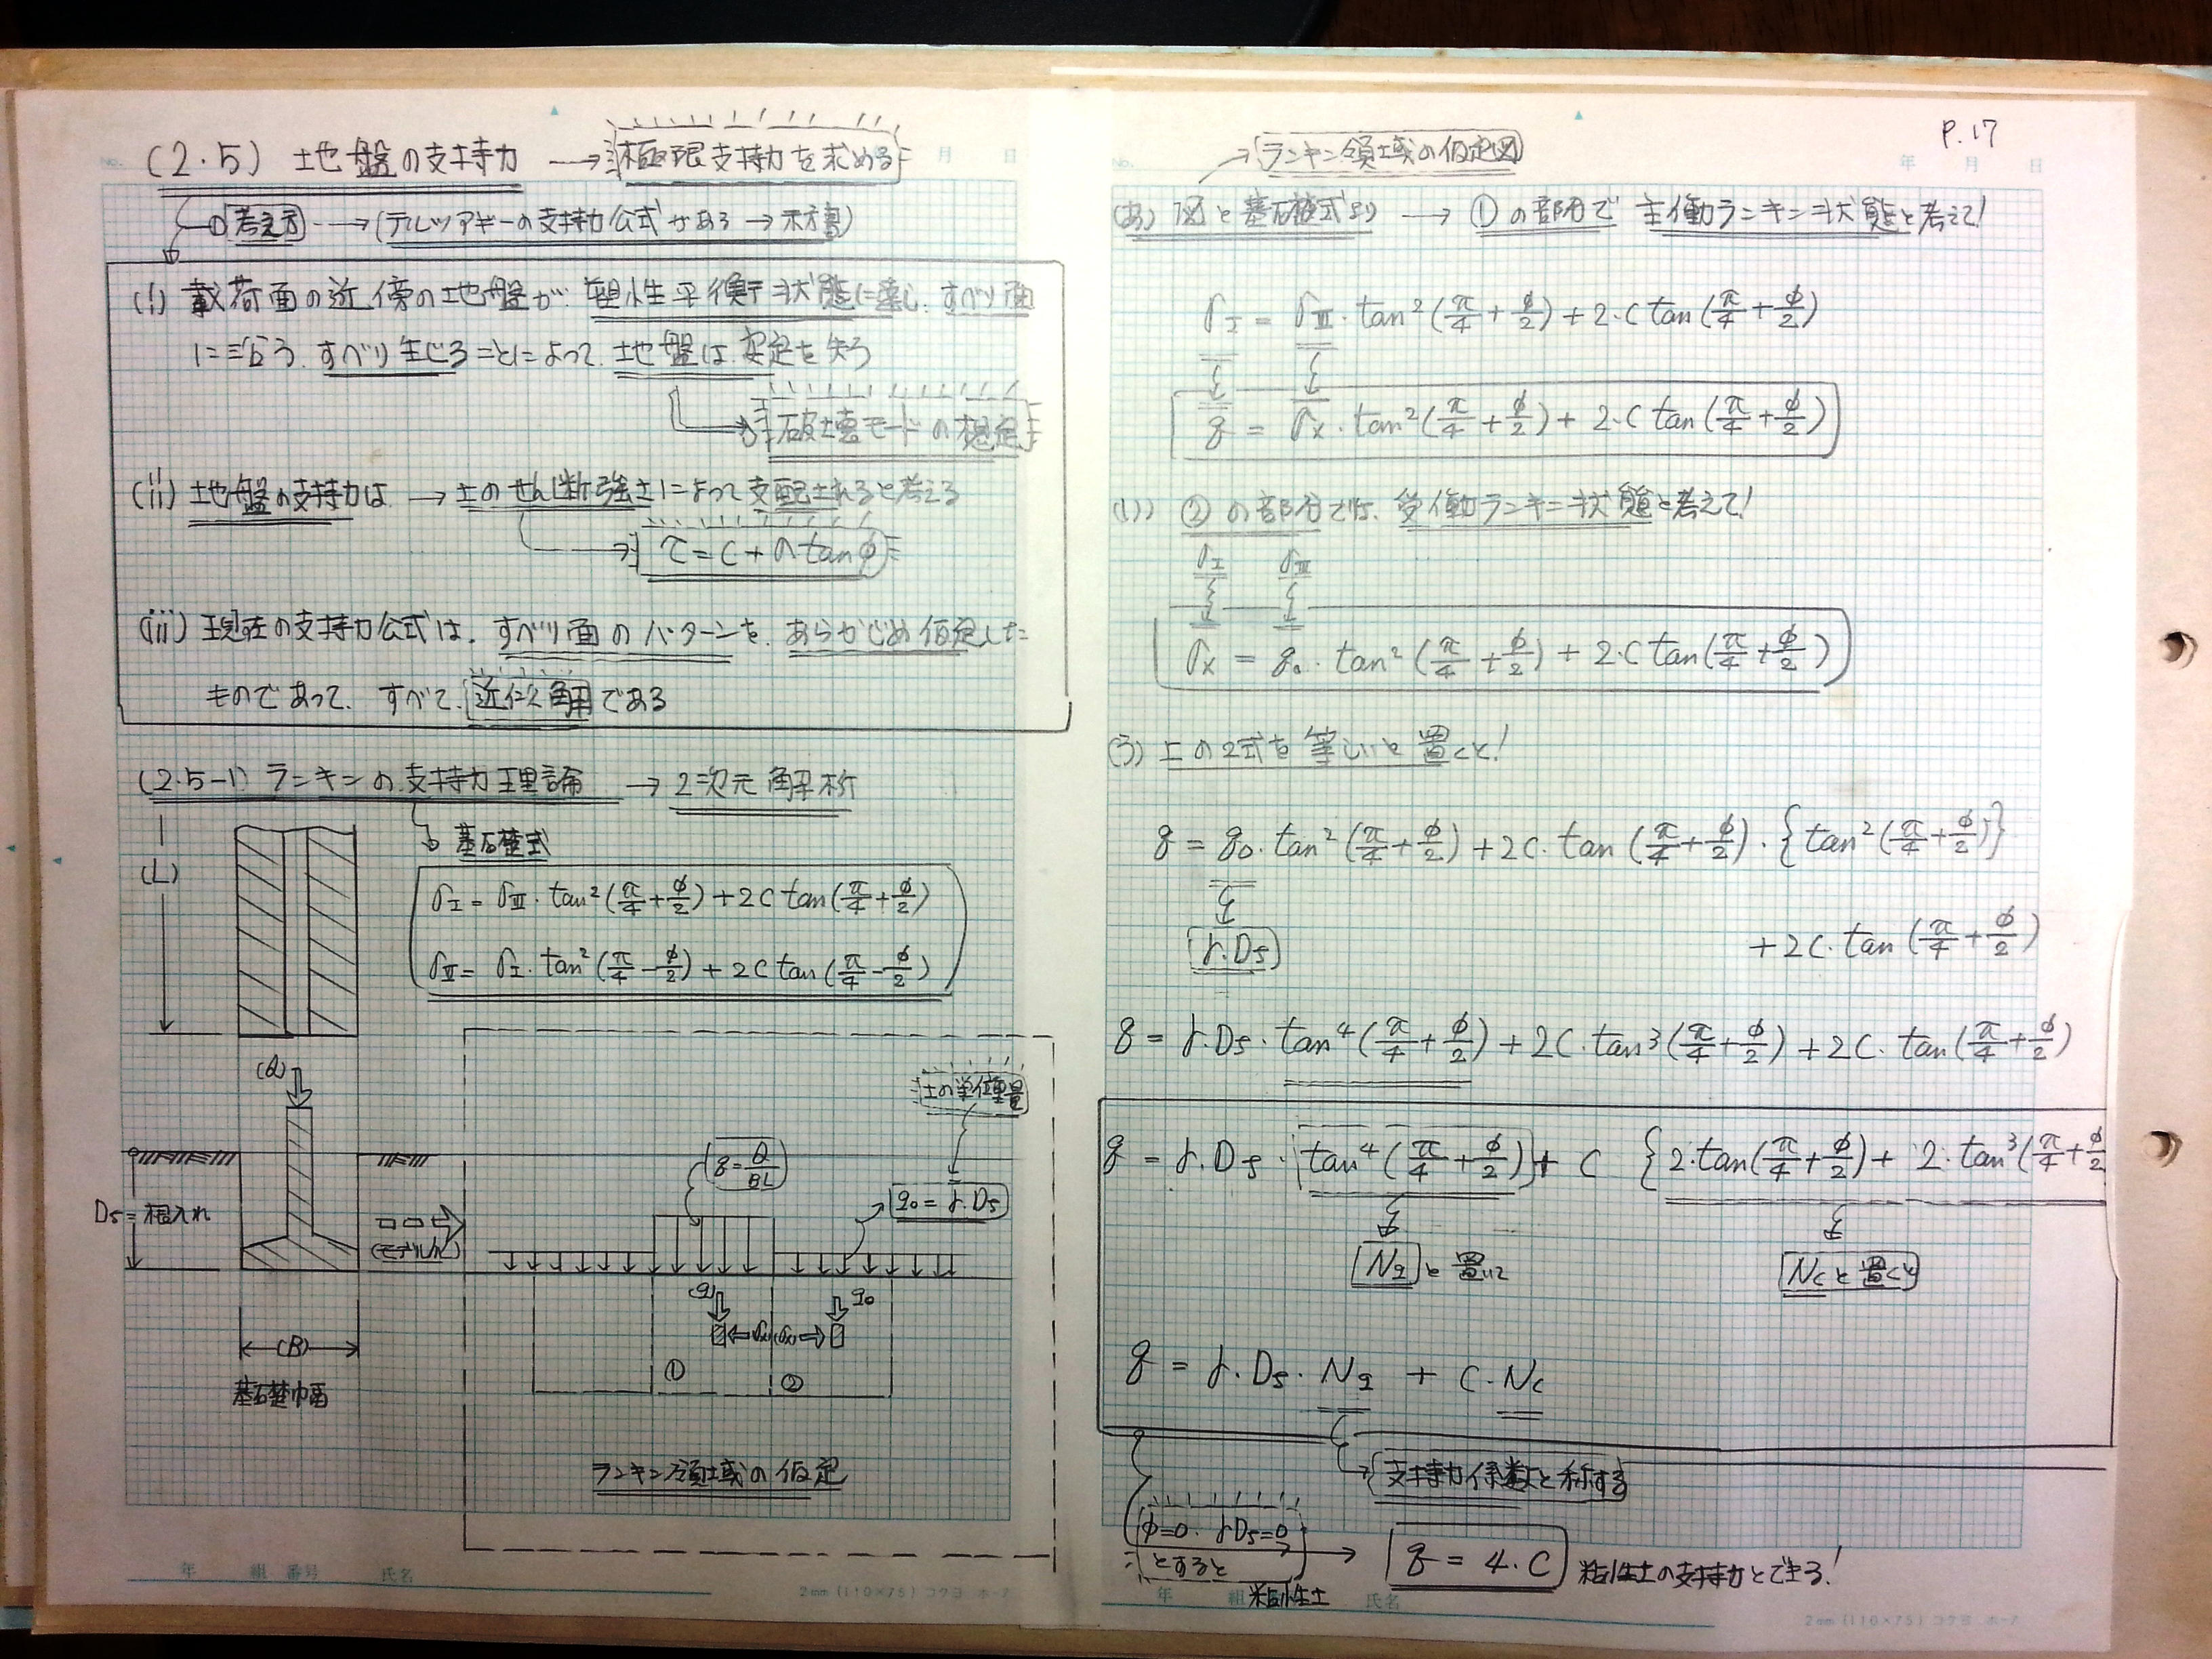 (2.5) 地盤の支持力 → 極限支持力を求める
考え方 → (テルツァギーの支持力公式がある → 示方書)
(i) 載荷面の近傍の地盤が、塑性平衡状態に達し、すべり面
に沿う、すべり生じることによって、地盤は安定を失う
破壊モードの想定
(ii) 地盤の支持力は → 土のせん断強さによって支配されると考える
τ = C + σ tan φ
(iii) 現在の支持力公式は、すべり面のパターンを、あらかじめ仮定した
ものであって、すべて、近似解である
(2.5-1) ランキンの支持力理論 → 2次元解析
基礎式
(L)
σI = σIII・tan²(π/4 + φ/2) + 2C tan(π/4 + φ/2)
σIII = σI・tan²(π/4 − φ/2) + 2C tan(π/4 − φ/2)
(Q)
土の単位重量
q = Q/BL
q0 = γ・Df
Df = 根入れ
(モデル化)
(q) q0
(σx) (σx)
(B)
① ②
基礎巾
ランキン領域の仮定
年 組 番号 氏名
2mm (110×75) コクヨ ホ-7
P.17
月 日
ランキン領域の仮定図
No. 年 月 日
(あ) 図と基礎式より → ①の部分で 主働ランキン状態と考えて!
σI = σIII・tan²(π/4 + φ/2) + 2・C tan(π/4 + φ/2)
q = σx・tan²(π/4 + φ/2) + 2・C tan(π/4 + φ/2)
(い) ②の部分では、受働ランキン状態と考えて!
σI σIII
σx = q0・tan²(π/4 + φ/2) + 2・C tan(π/4 + φ/2)
(う) 上の2式を等しいと置くと!
q = q0・tan²(π/4 + φ/2) + 2C・tan(π/4 + φ/2)・{tan²(π/4 + φ/2)}
+ 2C・tan(π/4 + φ/2)
γ・Df
q = γ・Df・tan⁴(π/4 + φ/2) + 2C・tan³(π/4 + φ/2) + 2C・tan(π/4 + φ/2)
q = γ・Df・tan⁴(π/4 + φ/2) + C {2・tan(π/4 + φ/2) + 2・tan³(π/4 + φ/2
Nqと置いて Ncと置くと
q = γ・Df・Nq + C・Nc
支持力係数と称する
φ=0、γDf=0
とすると → q = 4・C 粘性土の支持力とできる!
粘性土
年 組 氏名
2mm (110×75) コクヨ ホ-7